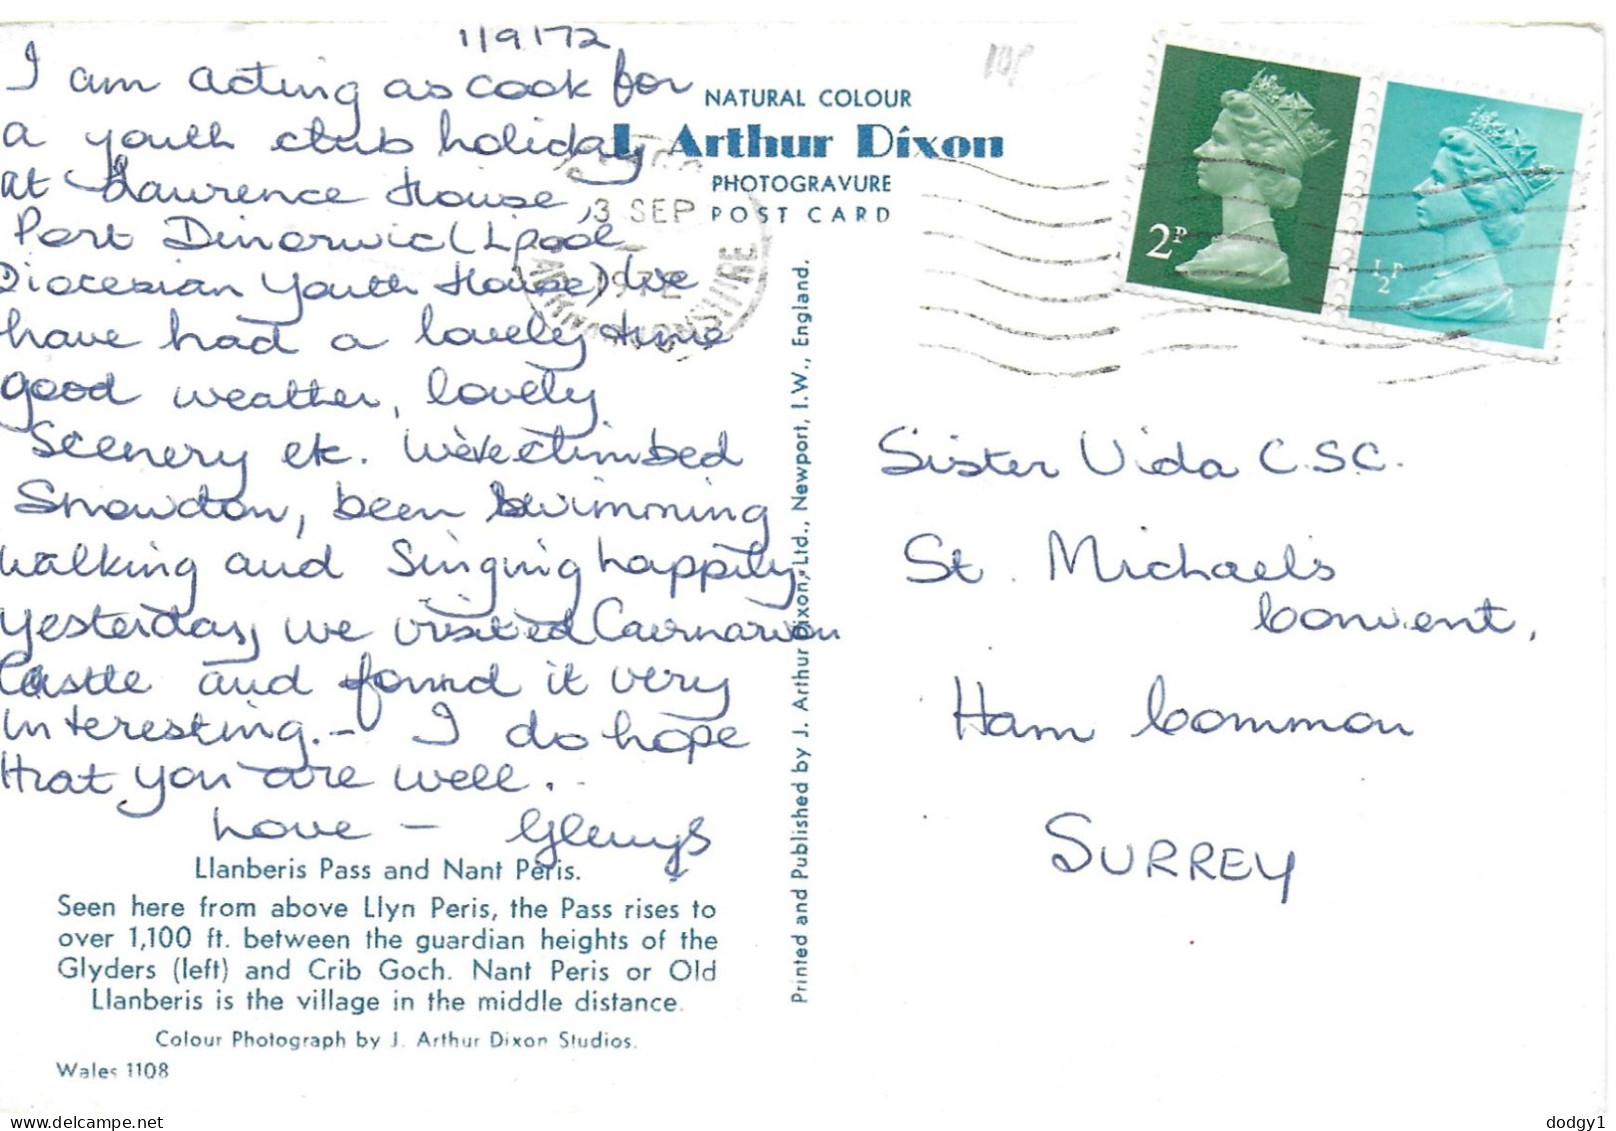 1/9/72
I am acting as cook for
a youth club holiday
at Lawrence House,
Port Dinorwic (Lpool
Diocesian Youth House) We
have had a lovely time
good weather, lovely
Scenery etc. We've climbed
Snowdon, been swimming
walking and Singing happily.
Yesterday, we visited Cairnarvon
Castle and found it very
interesting. - I do hope
that you are well.
Love - Glenys
Llanberis Pass and Nant Peris.
Seen here from above Llyn Peris, the Pass rises to
over 1,100 ft. between the guardian heights of the
Glyders (left) and Crib Goch. Nant Peris or Old
Llanberis is the village in the middle distance.
Colour Photograph by J. Arthur Dixon Studios.
Wales 1108
NATURAL COLOUR
J. Arthur Dixon
PHOTOGRAVURE
POST CARD
3 SEP
1972
Printed and Published by J. Arthur Dixon, Ltd., Newport, I.W., England.
10P
2P
½P
Sister Vida C.S.C.
St. Michael's
Convent,
Ham Common
SURREY
www.delcampe.net
dodgy1